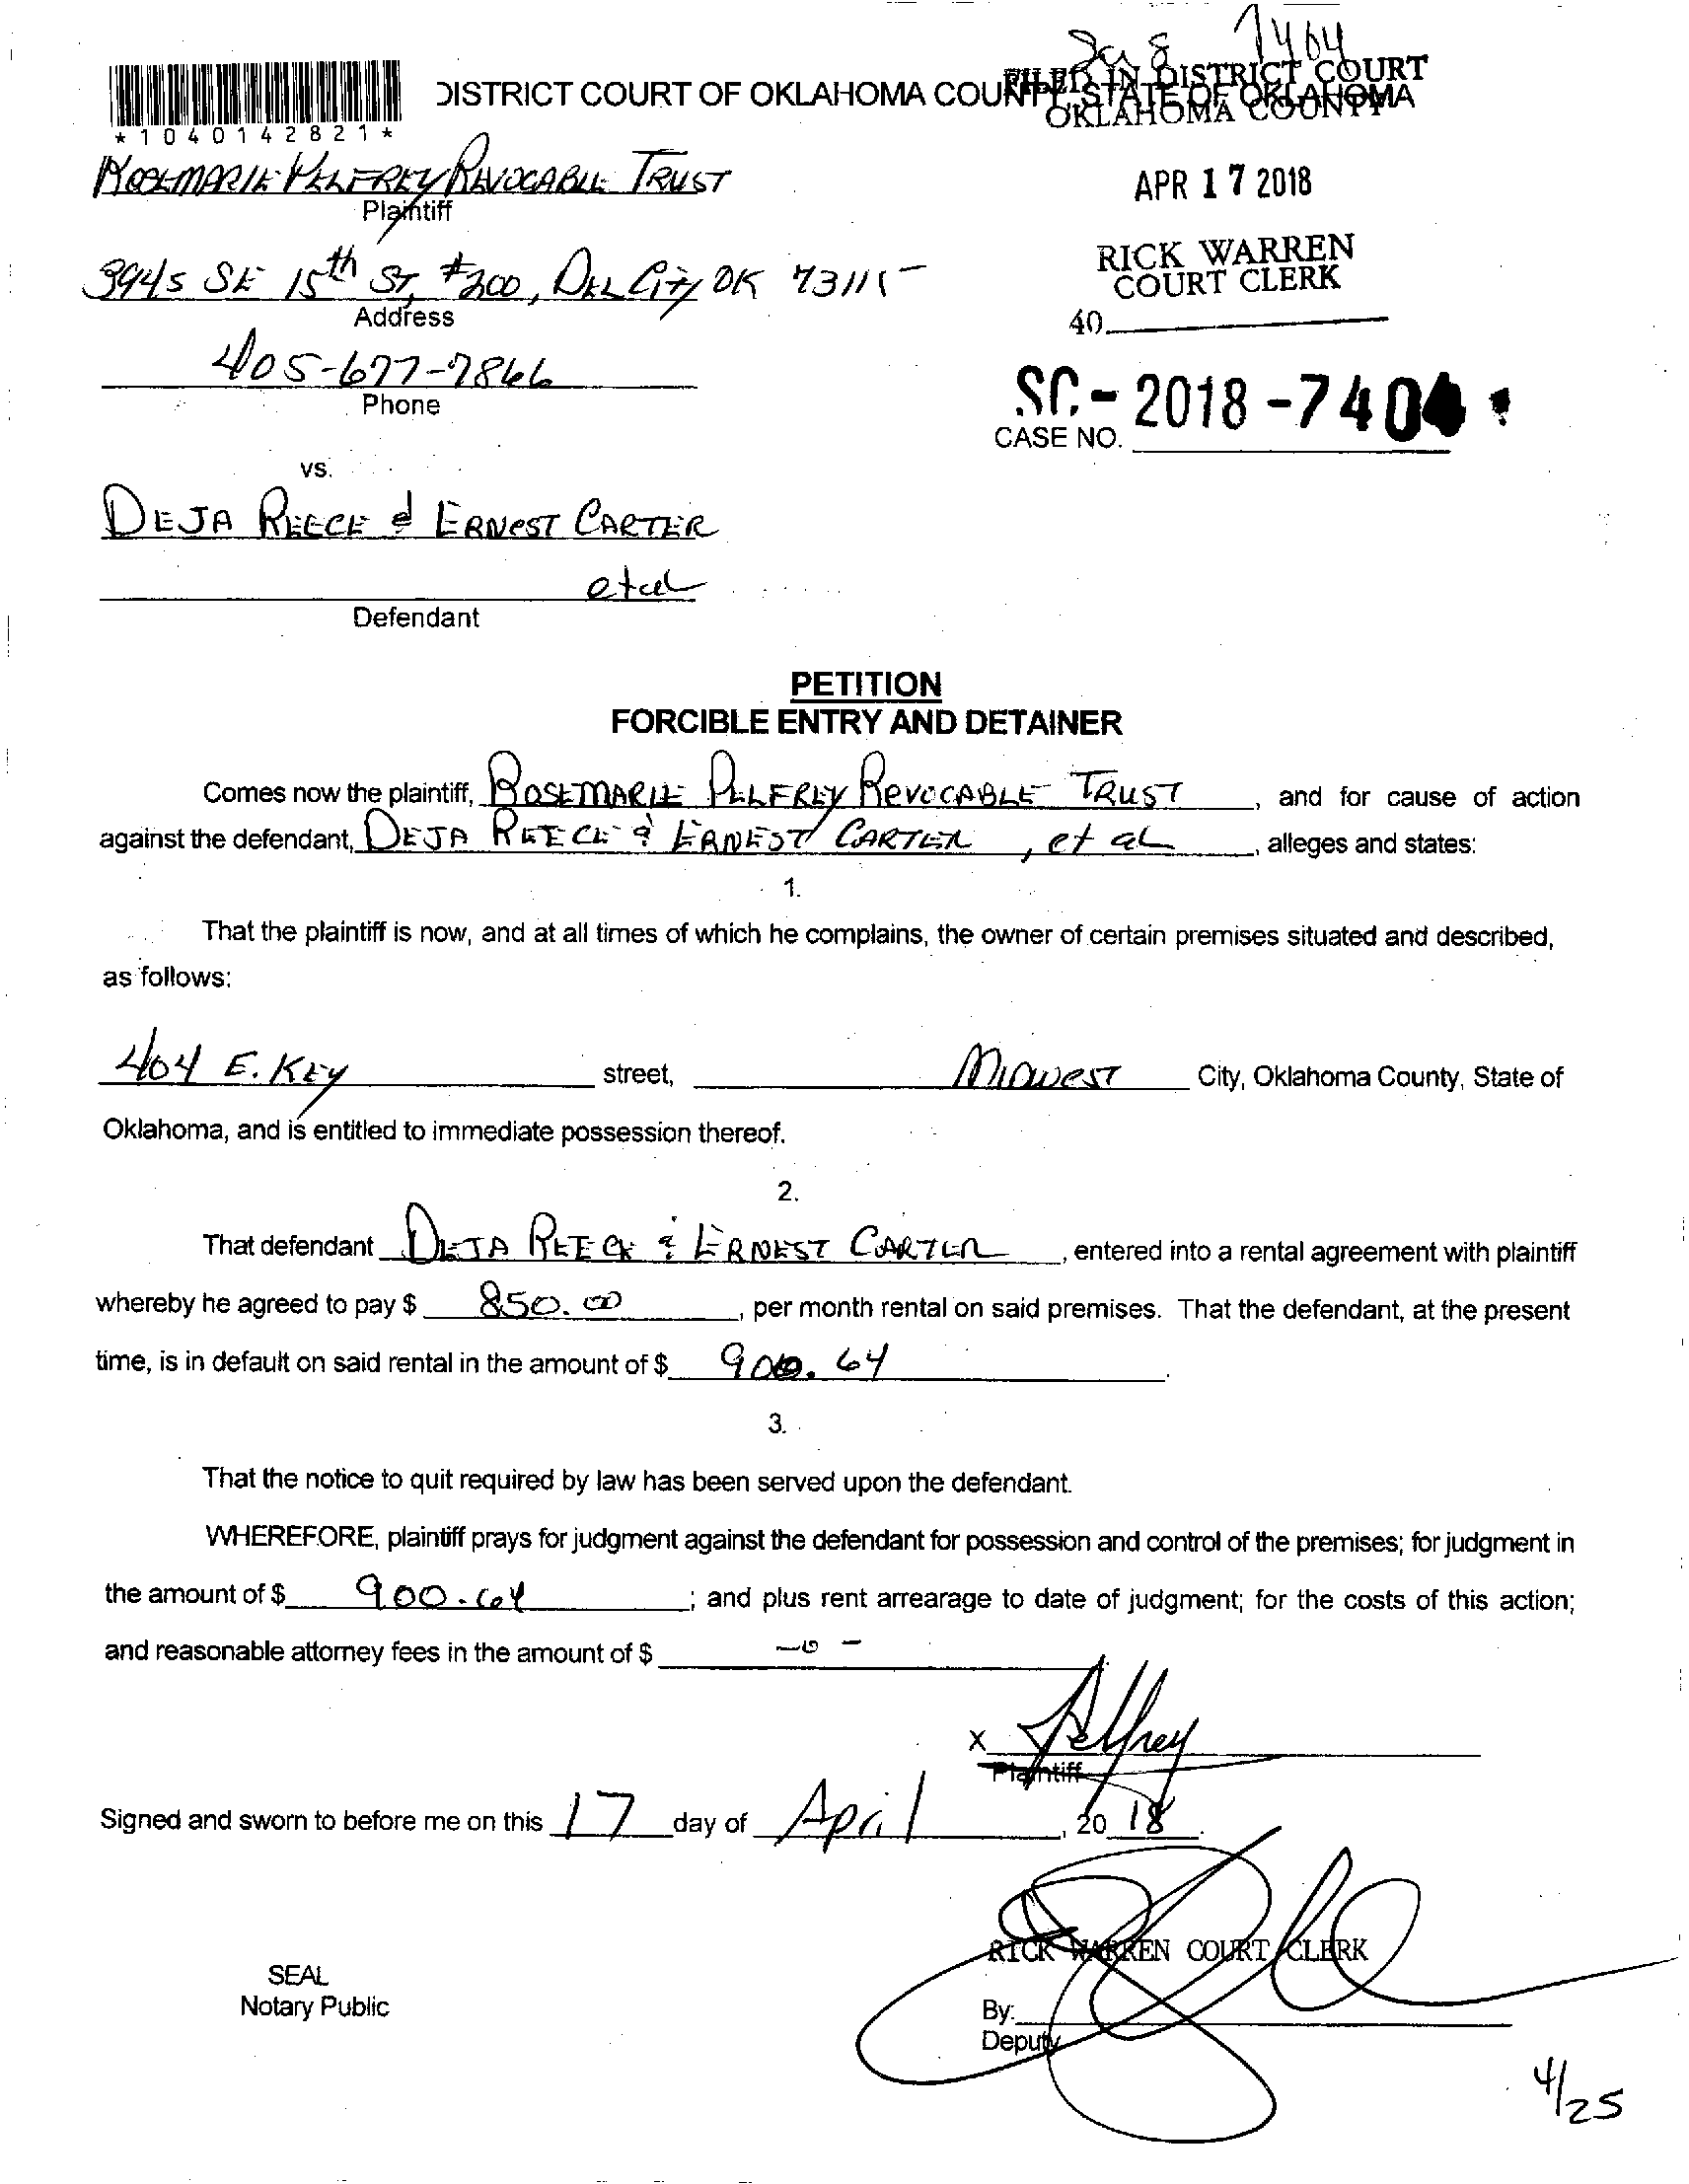 DISTRICT COURT OF OKLAHOMA COUNTY, STATE OF OKLAHOMA
FILED IN DISTRICT COURT
OKLAHOMA COUNTY
*1040142821*
ROSEMARIE PELFREY REVOCABLE TRUST
Plaintiff
APR 17 2018
RICK WARREN
COURT CLERK
3945 SE 15th ST, #200, DEL City OK 73115
Address
40
405-677-7866
Phone
SC-2018-740
CASE NO.
vs.
DEJA REECE & ERNEST CARTER
et al
Defendant
PETITION
FORCIBLE ENTRY AND DETAINER
Comes now the plaintiff, ROSEMARIE PELFREY REVOCABLE TRUST, and for cause of action
against the defendant, DEJA REECE & ERNEST CARTER, et al, alleges and states:
1.
That the plaintiff is now, and at all times of which he complains, the owner of certain premises situated and described,
as follows:
404 E. KEY street, MIDWEST City, Oklahoma County, State of
Oklahoma, and is entitled to immediate possession thereof.
2.
That defendant DEJA REECE & ERNEST CARTER, entered into a rental agreement with plaintiff
whereby he agreed to pay $ 850.00, per month rental on said premises. That the defendant, at the present
time, is in default on said rental in the amount of $ 900.64.
3.
That the notice to quit required by law has been served upon the defendant.
WHEREFORE, plaintiff prays for judgment against the defendant for possession and control of the premises; for judgment in
the amount of $ 900.64; and plus rent arrearage to date of judgment; for the costs of this action;
and reasonable attorney fees in the amount of $ -0-
X Pelfrey
Plaintiff
Signed and sworn to before me on this 17 day of April, 20 18.
RICK WARREN COURT CLERK
SEAL
Notary Public
By:
Deputy
4/25